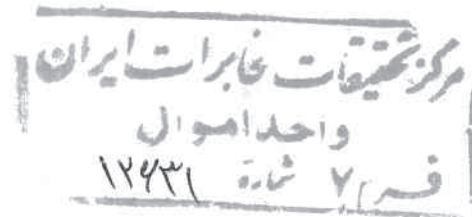 مرکز تحقیقات مخابرات ایران
واحد اموال
فرم ۷ شماره ۱۲۶۳۱